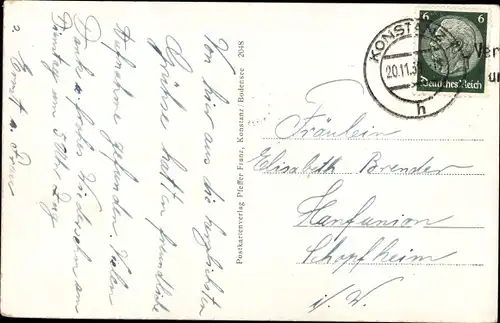 Von hier aus die herzlichsten
Grüsse. hatten freundliche
Aufnahme gefunden. Vielen
Dank u. frohes Wiedersehn am
Dienstag am 5 Uhr Zug
Ernst u. Frau
Postkartenverlag Pfeffer Franz, Konstanz/Bodensee 2048
KONSTANZ
20.11.3
h
6 6
Deutsches Reich
Ver
u
Fräulein
Elisabeth Brender
Hanfunion
Schopfheim
i/W.